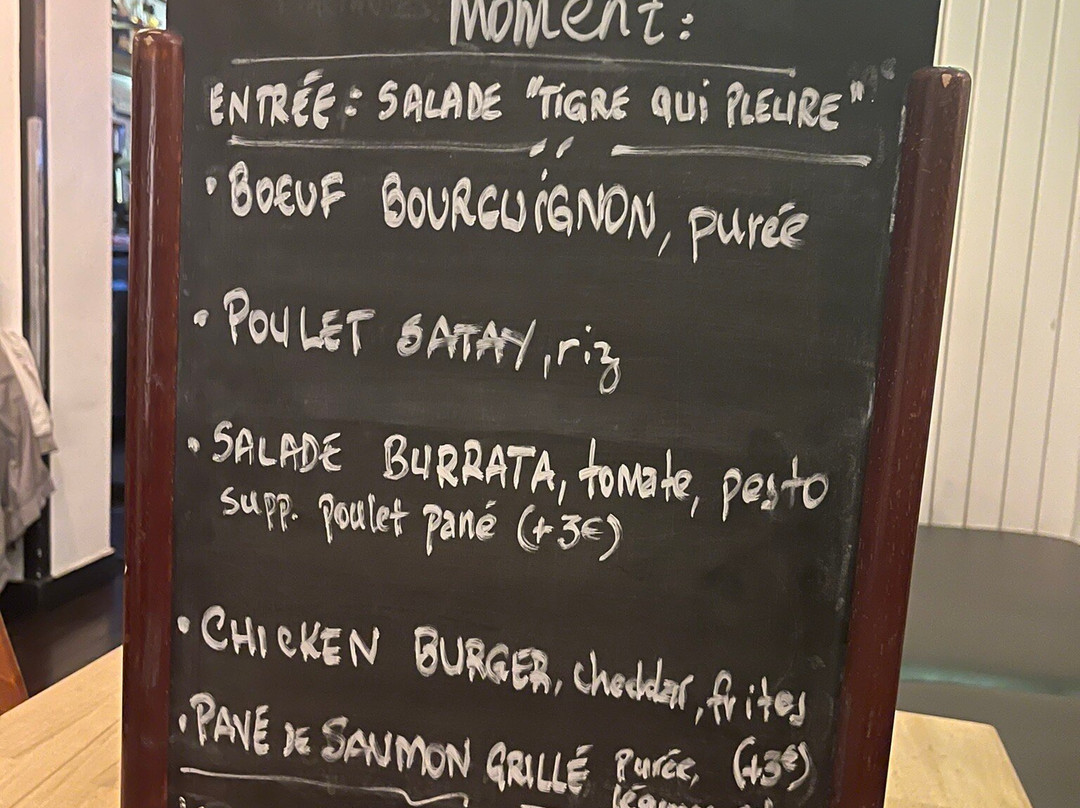 Moment :
ENTRÉE : SALADE "TIGRE QUI PLEURE"
• BOEUF BOURGUIGNON, purée
• POULET SATAY, riz
• SALADE BURRATA, tomate, pesto
supp. poulet pané (+3€)
• CHICKEN BURGER, cheddar, frites
• PAVÉ DE SAUMON GRILLÉ purée, (+3€)